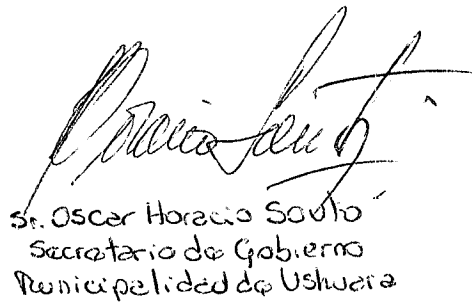 Horacio Souto
Sr. Oscar Horacio Souto
Secretario de Gobierno
Municipalidad de Ushuaia